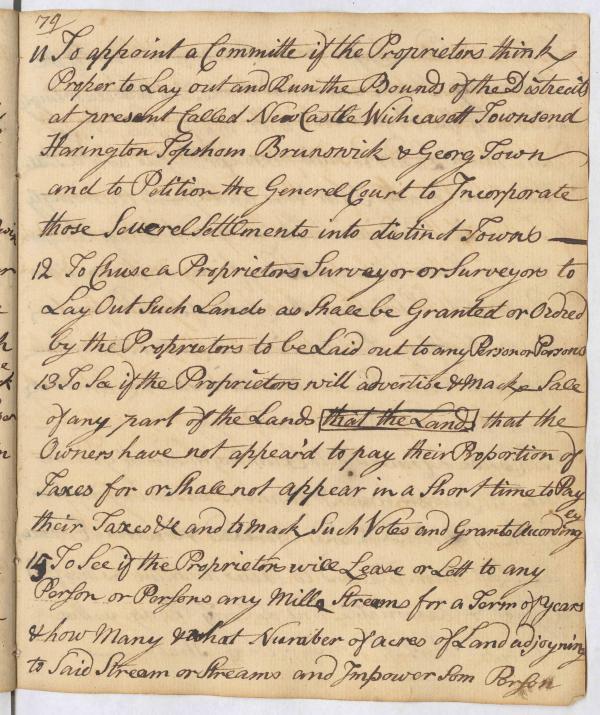 79
11 To appoint a Committe if the Proprietors think
Proper to Lay out and Run the Bounds of the Distrects
at present Called New Castle Wichcasett Townsend
Harington Topsham Brunswick & Georg Town
and to Petition the Generel Court to Incorporate
those Severel Settlments into distinct Towns —
12 To Chuse a Proprietors Surveyor or Surveyors to
Lay Out Such Lands as Shall be Granted or Ordred
by the Proprietors to be Laid out to any Person or Persons
13 To See if the Proprietors will advertise & Mack Sale
of any part of the Lands that the Lands that the
Owners have not appear'd to pay their Proportion of
Taxes for or Shall not appear in a Short time to Pay
their Taxes &c and to mack Such Votes and Grants Acording
ey
15 To See if the Proprietors will Lease or Lett to any
Person or Persons any Mill Streams for a Term of years
& how Many & what Number of acres of Land adjoyning
to Said Stream or Streams and Impower Som Person